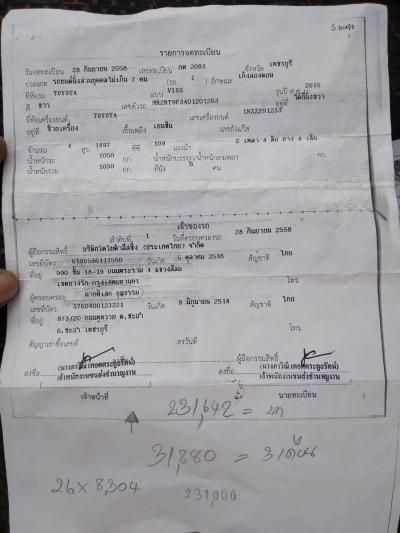 รายการจดทะเบียน
วันจดทะเบียน 28 กันยายน 2558 เลขทะเบียน กต 2083 จังหวัด เพชรบุรี
ประเภท รถยนต์นั่งส่วนบุคคลไม่เกิน 7 คน (รย. 1 ) ลักษณะ เก๋งสองตอน
ยี่ห้อรถ TOYOTA แบบ VIOS รุ่นปี ค.ศ. 2015
สี ขาว เลขตัวรถ MR2BT9F3401201263 อยู่ที่
ยี่ห้อเครื่องยนต์ TOYOTA เลขเครื่องยนต์
อยู่ที่ ข้างเครื่อง เชื้อเพลิง เบนซิน เลขถังแก๊ส
จำนวน 4 สูบ 1497 ซีซี 109 แรงม้า 2 เพลา 4 ล้อ ยาง 4 เส้น
น้ำหนักรถ 1050 กก. น้ำหนักบรรทุก/น้ำหนักลงเพลา กก.
น้ำหนักรวม 1050 กก. ที่นั่ง 5 คน
เจ้าของรถ
ลำดับที่ 1 วันที่ครอบครองรถ 28 กันยายน 2558
ผู้ถือกรรมสิทธิ์ บริษัทโตโยต้าลีสซิ่ง (ประเทศไทย) จำกัด
เลขที่บัตร 0105536113550 5 ตุลาคม 2536 สัญชาติ ไทย
ที่อยู่ 990 ชั้น 18-19 ถนนพระราม 4 แขวงสีลม
เขตบางรัก กรุงเทพมหานคร โทร.
ผู้ครอบครอง
เลขที่บัตร 3760400123221 8 มิถุนายน 2514 สัญชาติ ไทย
ที่อยู่ 873/20 ต.ชะอำ
อ.ชะอำ เพชรบุรี โทร.
สัญญาเช่าซื้อเลขที่ ลงวันที่
ผู้ถือกรรมสิทธิ์
ลงชื่อ เจ้าพนักงานขนส่งชำนาญงาน ลงชื่อ เจ้าพนักงานขนส่งชำนาญงาน
เจ้าหน้าที่ นายทะเบียน
5
231,642 =
31,880 =
26 x 8,304 231,000